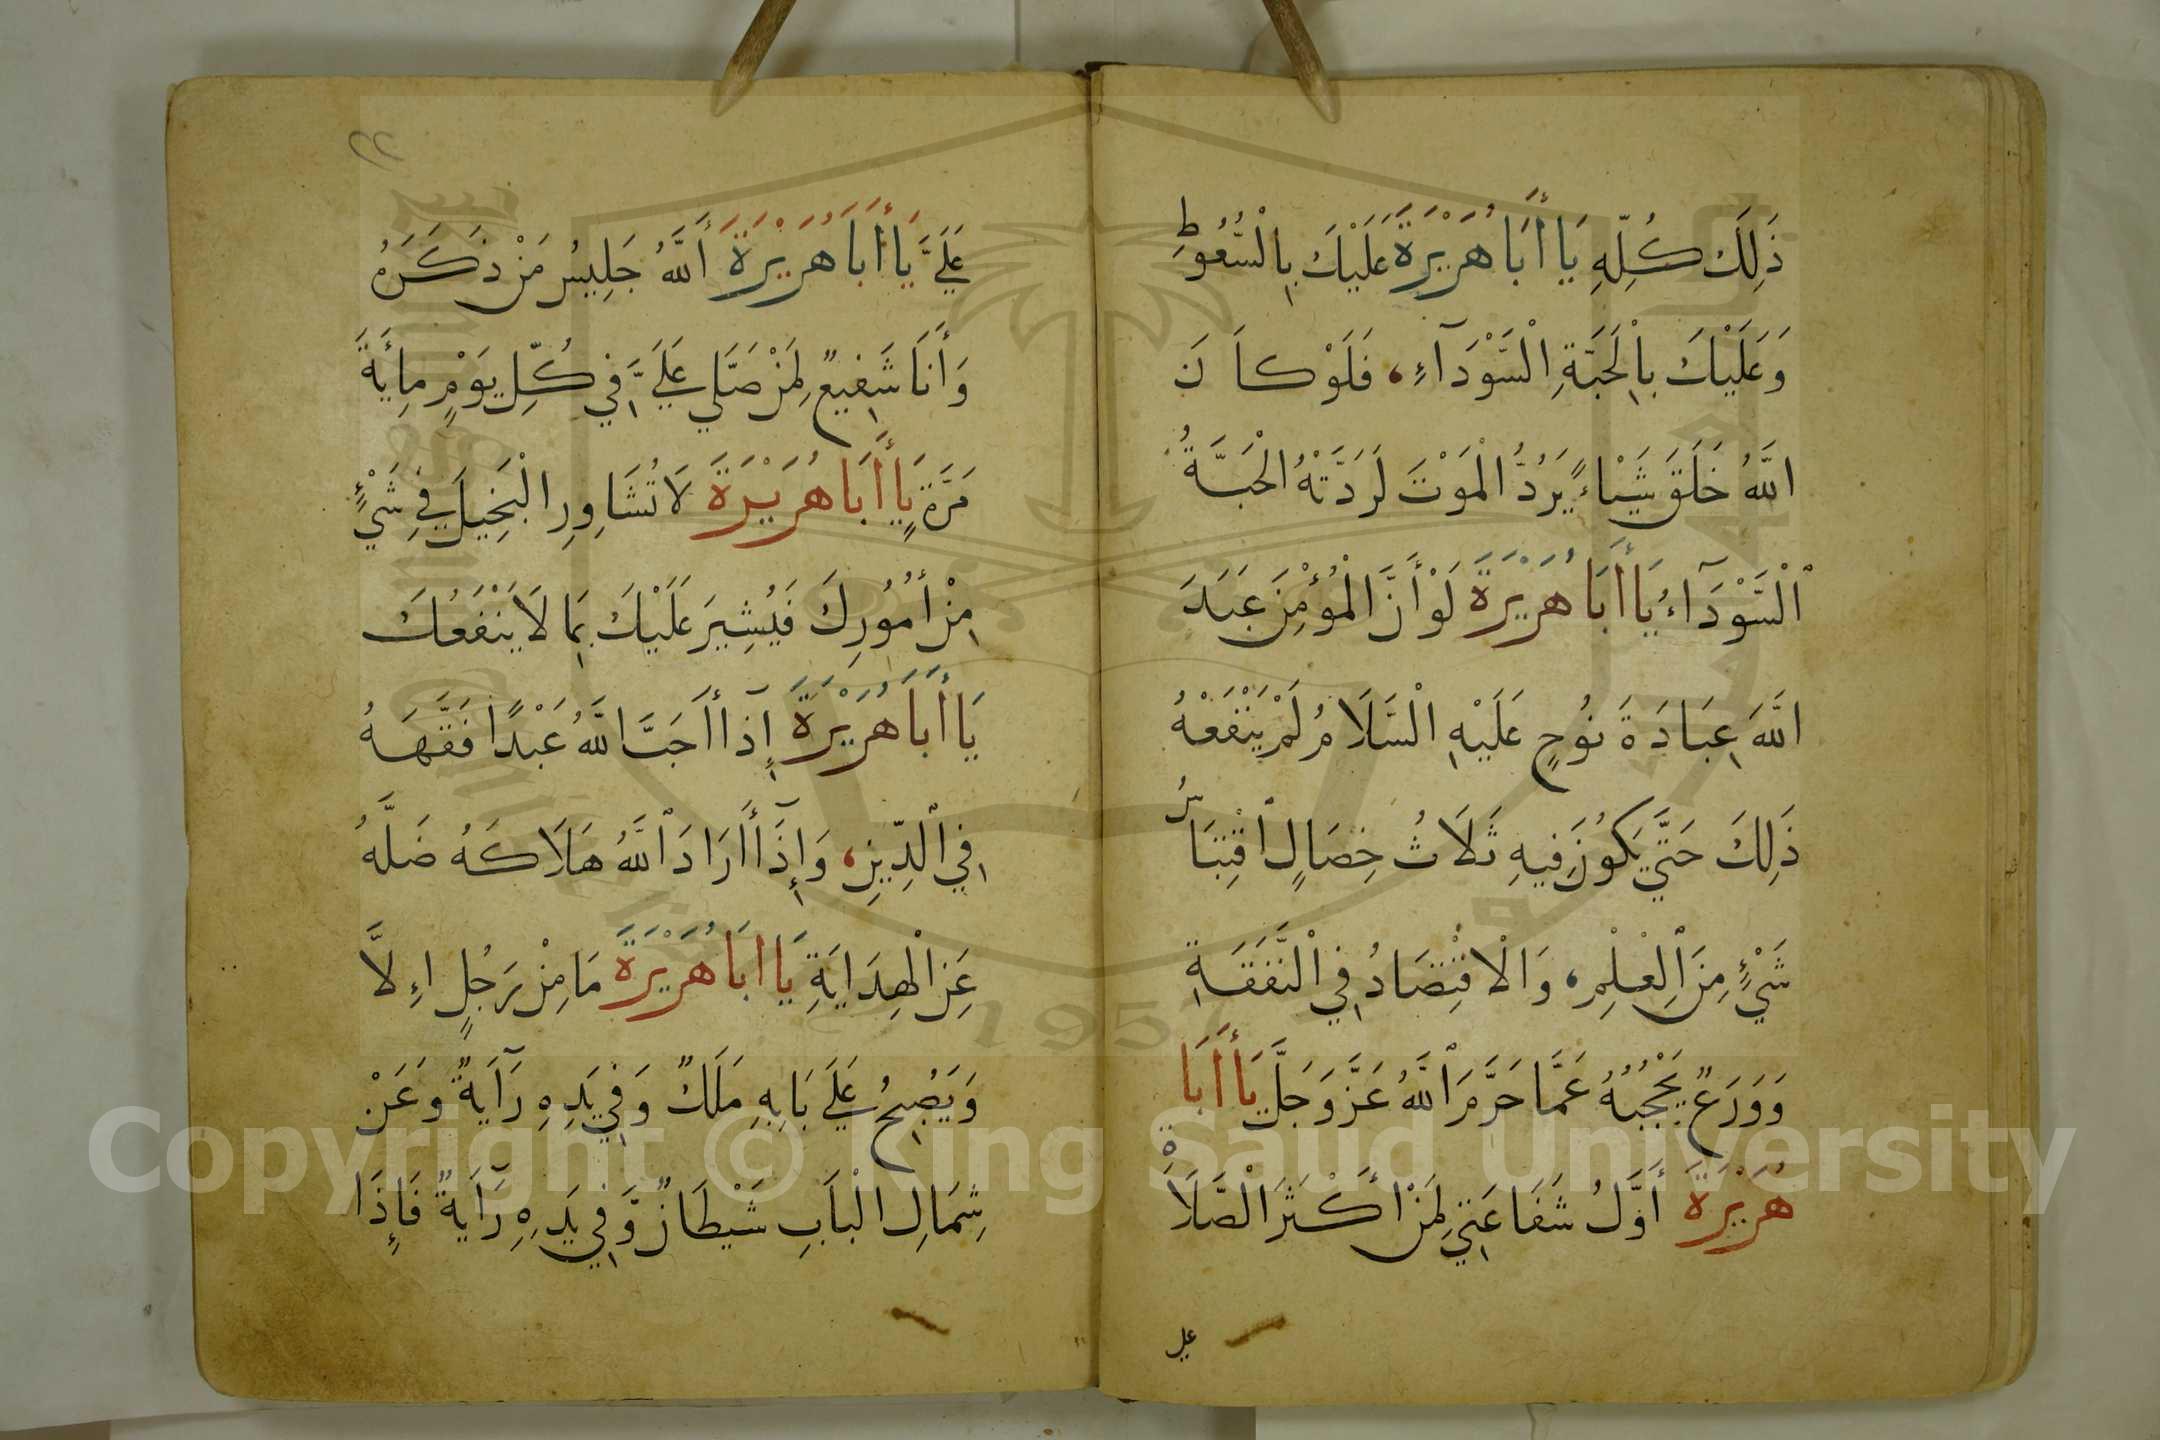 ذَلِكَ كُلِّهِ يَا أَبَا هُرَيْرَةَ عَلَيْكَ بِالْسُّعُوطِ
وَعَلَيْكَ بِالْحَبَّةِ الْسَّوْدَآءِ، فَلَوْ كَانَ
اللَّهُ خَلَقَ شَيْاءً يَرُدُّ الْمَوْتَ لَرَدَّتْهُ الْحَبَّةُ
ٱلْسَّوْدَآءُ يَا أَبَا هُرَيْرَةَ لَوْ أَنَّ الْمُؤْمِنَ عَبَدَ
اللَّهَ عِبَادَةَ نُوحٍ عَلَيْهِ الْسَّلَامُ لَمْ يَنْفَعْهُ
ذَلِكَ حَتَّى يَكُونَ فِيهِ ثَلَاثُ خِصَالٍ ٱقْتِبَاسُ
شَيْءٍ مِنَ ٱلْعِلْمِ، وَالْاقْتِصَادُ فِي الْنَّفَقَةِ
وَوَرَعٌ يَحْجُبُهُ عَمَّا حَرَّمَ ٱللَّهُ عَزَّ وَجَلَّ يَا أَبَا
هُرَيْرَةَ أَوَّلُ شَفَاعَتِي لِمَنْ أَكْثَرَ الْصَّلَاةَ
علي
٢٢
عَلَيَّ يَا أَبَا هُرَيْرَةَ أَللَّهُ جَلِيسُ مَنْ ذَكَرَهُ
وَأَنَا شَفِيعٌ لِمَنْ صَلَّي عَلَيَّ فِي كُلِّ يَوْمٍ مِايَةَ
مَرَّةٍ يَا أَبَا هُرَيْرَةَ لَا تُشَاوِرِ الْبَخِيلَ فِي شَيْءٍ
مِنْ أُمُورِكَ فَيُشِيرَ عَلَيْكَ بِمَا لَا يَنْفَعُكَ
يَا أَبَا هُرَيْرَةَ إِذَا أَحَبَّ اللَّهُ عَبْدًا فَقَّهَهُ
فِي ٱلْدِّينِ، وَإِذَا أَرَادَ ٱللَّهُ هَلَاكَهُ ضَلَّهُ
عَنِ الْهِدَايَةِ يَا أَبَا هُرَيْرَةَ مَا مِنْ رَجُلٍ اِلَّا
وَيَصْبِحُ عَلَي بَابِهِ مَلَكٌ وَفِي يَدِهِ رَآيَةٌ وَعَنْ
شِمَالِ الْبَابِ شَيْطَانٌ وَّفِي يَدِهِ رَآيَةٌ فَإِذَا
Copyright © King Saud University
1957